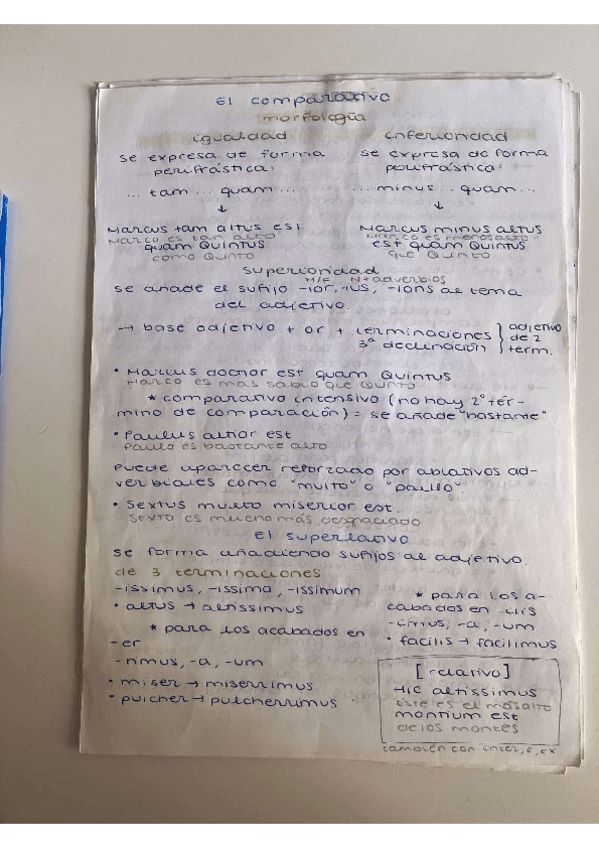 El comparativo
morfología
igualdad
se expresa de forma
perifrástica:
... tam ... quam ...
↓
Marcus tam altus est
Marco es tan alto
quam QUINTUS
como Quinto
inferioridad
se expresa de forma
perifrástica:
... minus ... quam ...
↓
Marcus minus altus
Marco es menos alto
est quam QUINTUS
que Quinto
superioridad
M/F N+adverbios
se añade el sufijo -ior, -ius, -ioris al tema
del adjetivo.
→ base adjetivo + or + terminaciones
3ª declinación
adjetivo
de 2
term.
• Marcus doctior est quam Quintus
Marco es más sabio que Quinto
* comparativo intensivo (no hay 2º tér-
mino de comparación) = se añade "bastante"
• Paulus altior est
Paulo es bastante alto
Puede aparecer reforzado por ablativos ad-
verbiales como "multo" o "paulo".
• Sextus multo miserior est.
Sexto es mucho más desgraciado
el superlativo
se forma añadiendo sufijos al adjetivo.
de 3 terminaciones
-issimus, -issima, -issimum
• altus → altissimus
* para los acabados en
-er
-rimus, -a, -um
• miser → miserrimus
• pulcher → pulcherrimus
* para los a-
cabados en -lis
-limus, -a, -um
• facilis → facilimus
[relativo]
Hic altissimus
Este es el más alto
montium est
de los montes
también con inter, e, ex